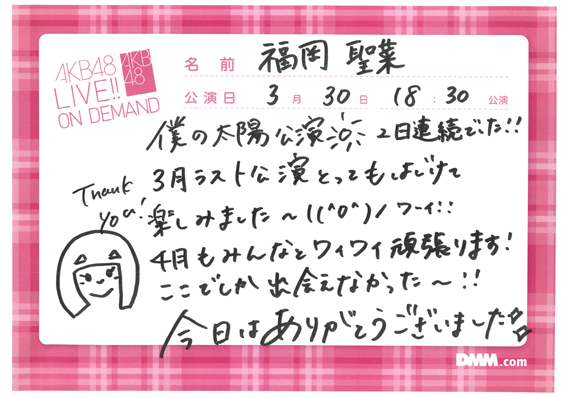 AKB48
LIVE!!
ON DEMAND
AKB
48
名前 福岡 聖菜
公演日 3月30日 18:30公演
僕の太陽公演 2日連続でした!!
3月ラスト公演とってもはじけて
楽しみました〜!((^o^)ノワーイ!!
4月もみんなとワイワイ頑張ります!
ここでしか出会えなかった〜!!
今日はありがとうございました
Thank
you!
DMM.com